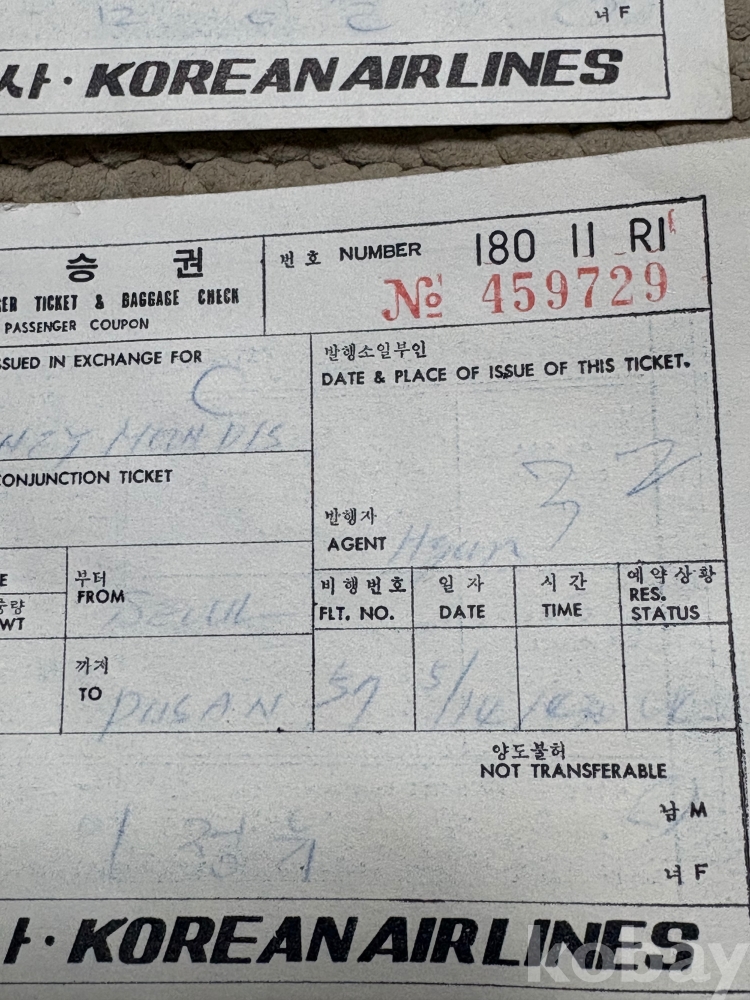 녀 F
사·KOREAN AIR LINES
승 권
번호 NUMBER 180 11 R1
GER TICKET & BAGGAGE CHECK
№ 459729
PASSENGER COUPON
SSUED IN EXCHANGE FOR
발행소일부인
DATE & PLACE OF ISSUE OF THIS TICKET.
C
CONJUNCTION TICKET
32
발행자
AGENT
E
중량
WT
부터
FROM SEOUL
비행번호
FLT. NO.
일자
DATE
시간
TIME
예약상황
RES.
STATUS
까지
TO PUSAN
57
5/14
양도불허
NOT TRANSFERABLE
남 M
녀 F
사·KOREAN AIR LINES
kobay